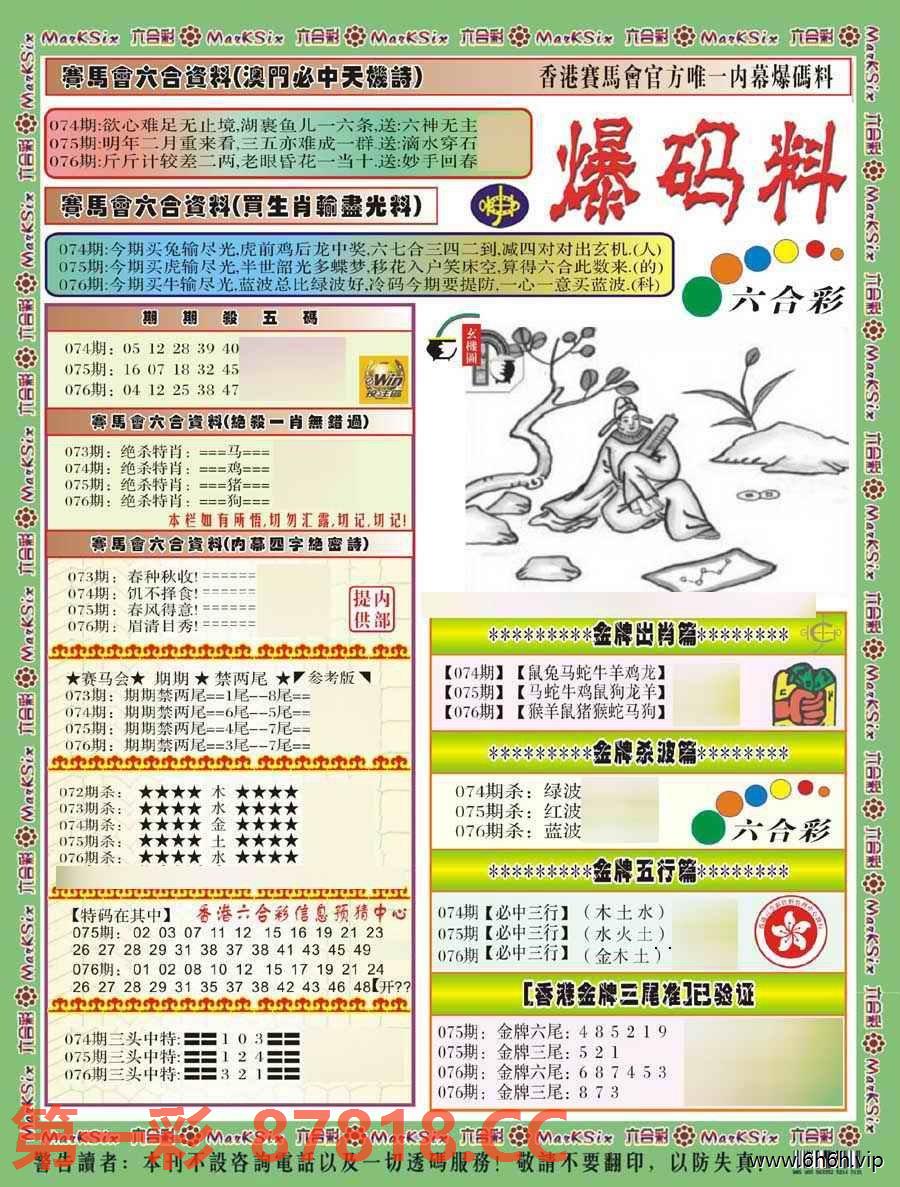 MarKSix 六合彩 MarKSix 六合彩 MarKSix 六合彩 MarKSix 六合彩 MarKSix 六合彩
賽馬會六合資料(澳門必中天機詩)
香港賽馬會官方唯一内幕爆碼料
074期:欲心难足无止境,湖裹鱼儿一六条,送:六神无主
075期:明年二月重来看,三五亦难成一群,送:滴水穿石
076期:斤斤计较差二两,老眼昏花一当十,送:妙手回春
爆码料
賽馬會六合資料(買生肖輸盡光料)
074期:今期买兔输尽光,虎前鸡后龙中奖,六七合三四二到,减四对对出玄机.(人)
075期:今期买虎输尽光,半世韶光多蝶梦,移花入户笑床空,算得六合此数来.(的)
076期:今期买牛输尽光,蓝波总比绿波好,冷码今期要提防,一心一意买蓝波.(科)
六合彩
期期殺五碼
074期: 05 12 28 39 40
075期: 16 07 18 32 45
076期: 04 12 25 38 47
Win
投注區
玄機圖
賽馬會六合資料(絕殺一肖無錯過)
073期: 绝杀特肖: ===马===
074期: 绝杀特肖: ===鸡===
075期: 绝杀特肖: ===猪===
076期: 绝杀特肖: ===狗===
本栏如有所悟,切勿汇露,切记,切记!
賽馬會六合資料(内幕四字絕密詩)
073期: 春种秋收!======
074期: 饥不择食!======
075期: 春风得意!======
076期: 眉清目秀!======
提供内部
★赛马会★ 期期 ★ 禁两尾 ★◤参考版◥
073期: 期期禁两尾==1尾--8尾==
074期: 期期禁两尾==6尾--5尾==
075期: 期期禁两尾==4尾--7尾==
076期: 期期禁两尾==3尾--7尾==
072期杀: ★★★★ 木 ★★★★
073期杀: ★★★★ 水 ★★★★
074期杀: ★★★★ 金 ★★★★
075期杀: ★★★★ 土 ★★★★
076期杀: ★★★★ 水 ★★★★
【特码在其中】 香港六合彩信息预猜中心
075期: 02 03 07 11 12 15 16 19 21 23
26 27 28 29 31 38 37 38 41 43 45 49
076期: 01 02 08 10 12 15 17 19 21 24
26 27 28 29 31 35 37 38 42 43 46 48【开??
074期三头中特:〓〓1 0 3〓〓
075期三头中特:〓〓1 2 4〓〓
076期三头中特:〓〓3 2 1〓〓
*********金牌出肖篇********
【074期】【鼠兔马蛇牛羊鸡龙】
【075期】【马蛇牛鸡鼠狗龙羊】
【076期】【猴羊鼠猪猴蛇马狗】
*********金牌杀波篇********
074期杀: 绿波
075期杀: 红波
076期杀: 蓝波
六合彩
*********金牌五行篇********
074期【必中三行】（木 土 水）
075期【必中三行】（水 火 土）
076期【必中三行】（金 木 土）
[香港金牌三尾准]已验证
075期: 金牌六尾: 4 8 5 2 1 9
075期: 金牌三尾: 5 2 1
076期: 金牌六尾: 6 8 7 4 5 3
076期: 金牌三尾: 8 7 3
第一彩 87818.CC
MarKSix 六合彩 MarKSix 六合彩 MarKSix 六合彩 MarKSix 六合彩 MarKSix 六合彩
警告讀者: 本刊不設咨詢電話以及一切透碼服務! 敬請不要翻印, 以防失真!
www.6h6h.vip